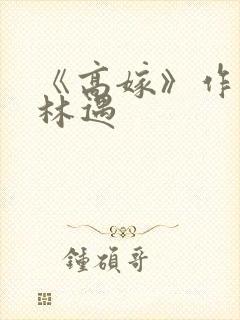 《高嫁》作
林遇
鍾碩哥